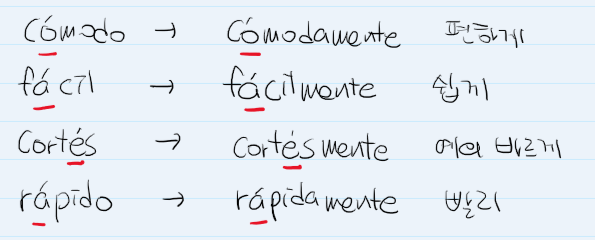 cómodo → cómodamente 편하게
fácil → fácilmente 쉽게
cortés → cortésmente 예의 바르게
rápido → rápidamente 빨리